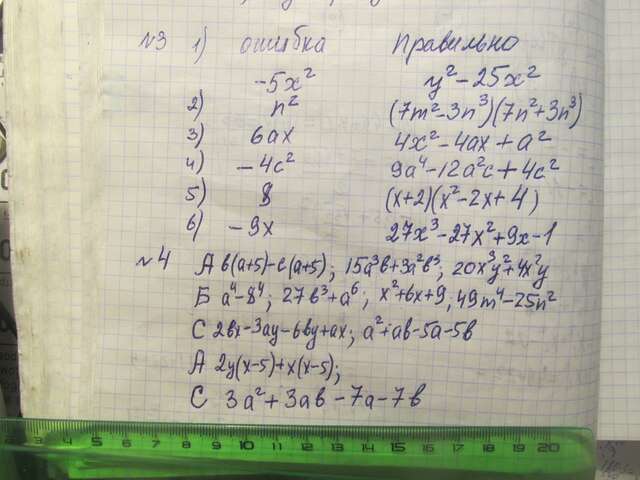 №3 1) ошибка Правильно
-5x² y²-25x²
2) n² (7m²-3n³)(7n²+3n³)
3) 6ax 4x²-4ax+a²
4) -4c² 9a⁴-12a²c+4c²
5) 8 (x+2)(x²-2x+4)
6) -9x 27x³-27x²+9x-1
№4 А в(a+5)-c(a+5); 15a³в+3a²в³; 20x³y²+4x²y
Б a⁴-8⁴; 27в³+a⁶; x²+6x+9, 49m⁴-25n²
С 2вx-3ay-6вy+ax; a²+aв-5a-5в
А 2y(x-5)+x(x-5);
С 3a²+3aв-7a-7в
3 4 5 6 7 8 9 10 11 12 13 14 15 16 17 18 19 20